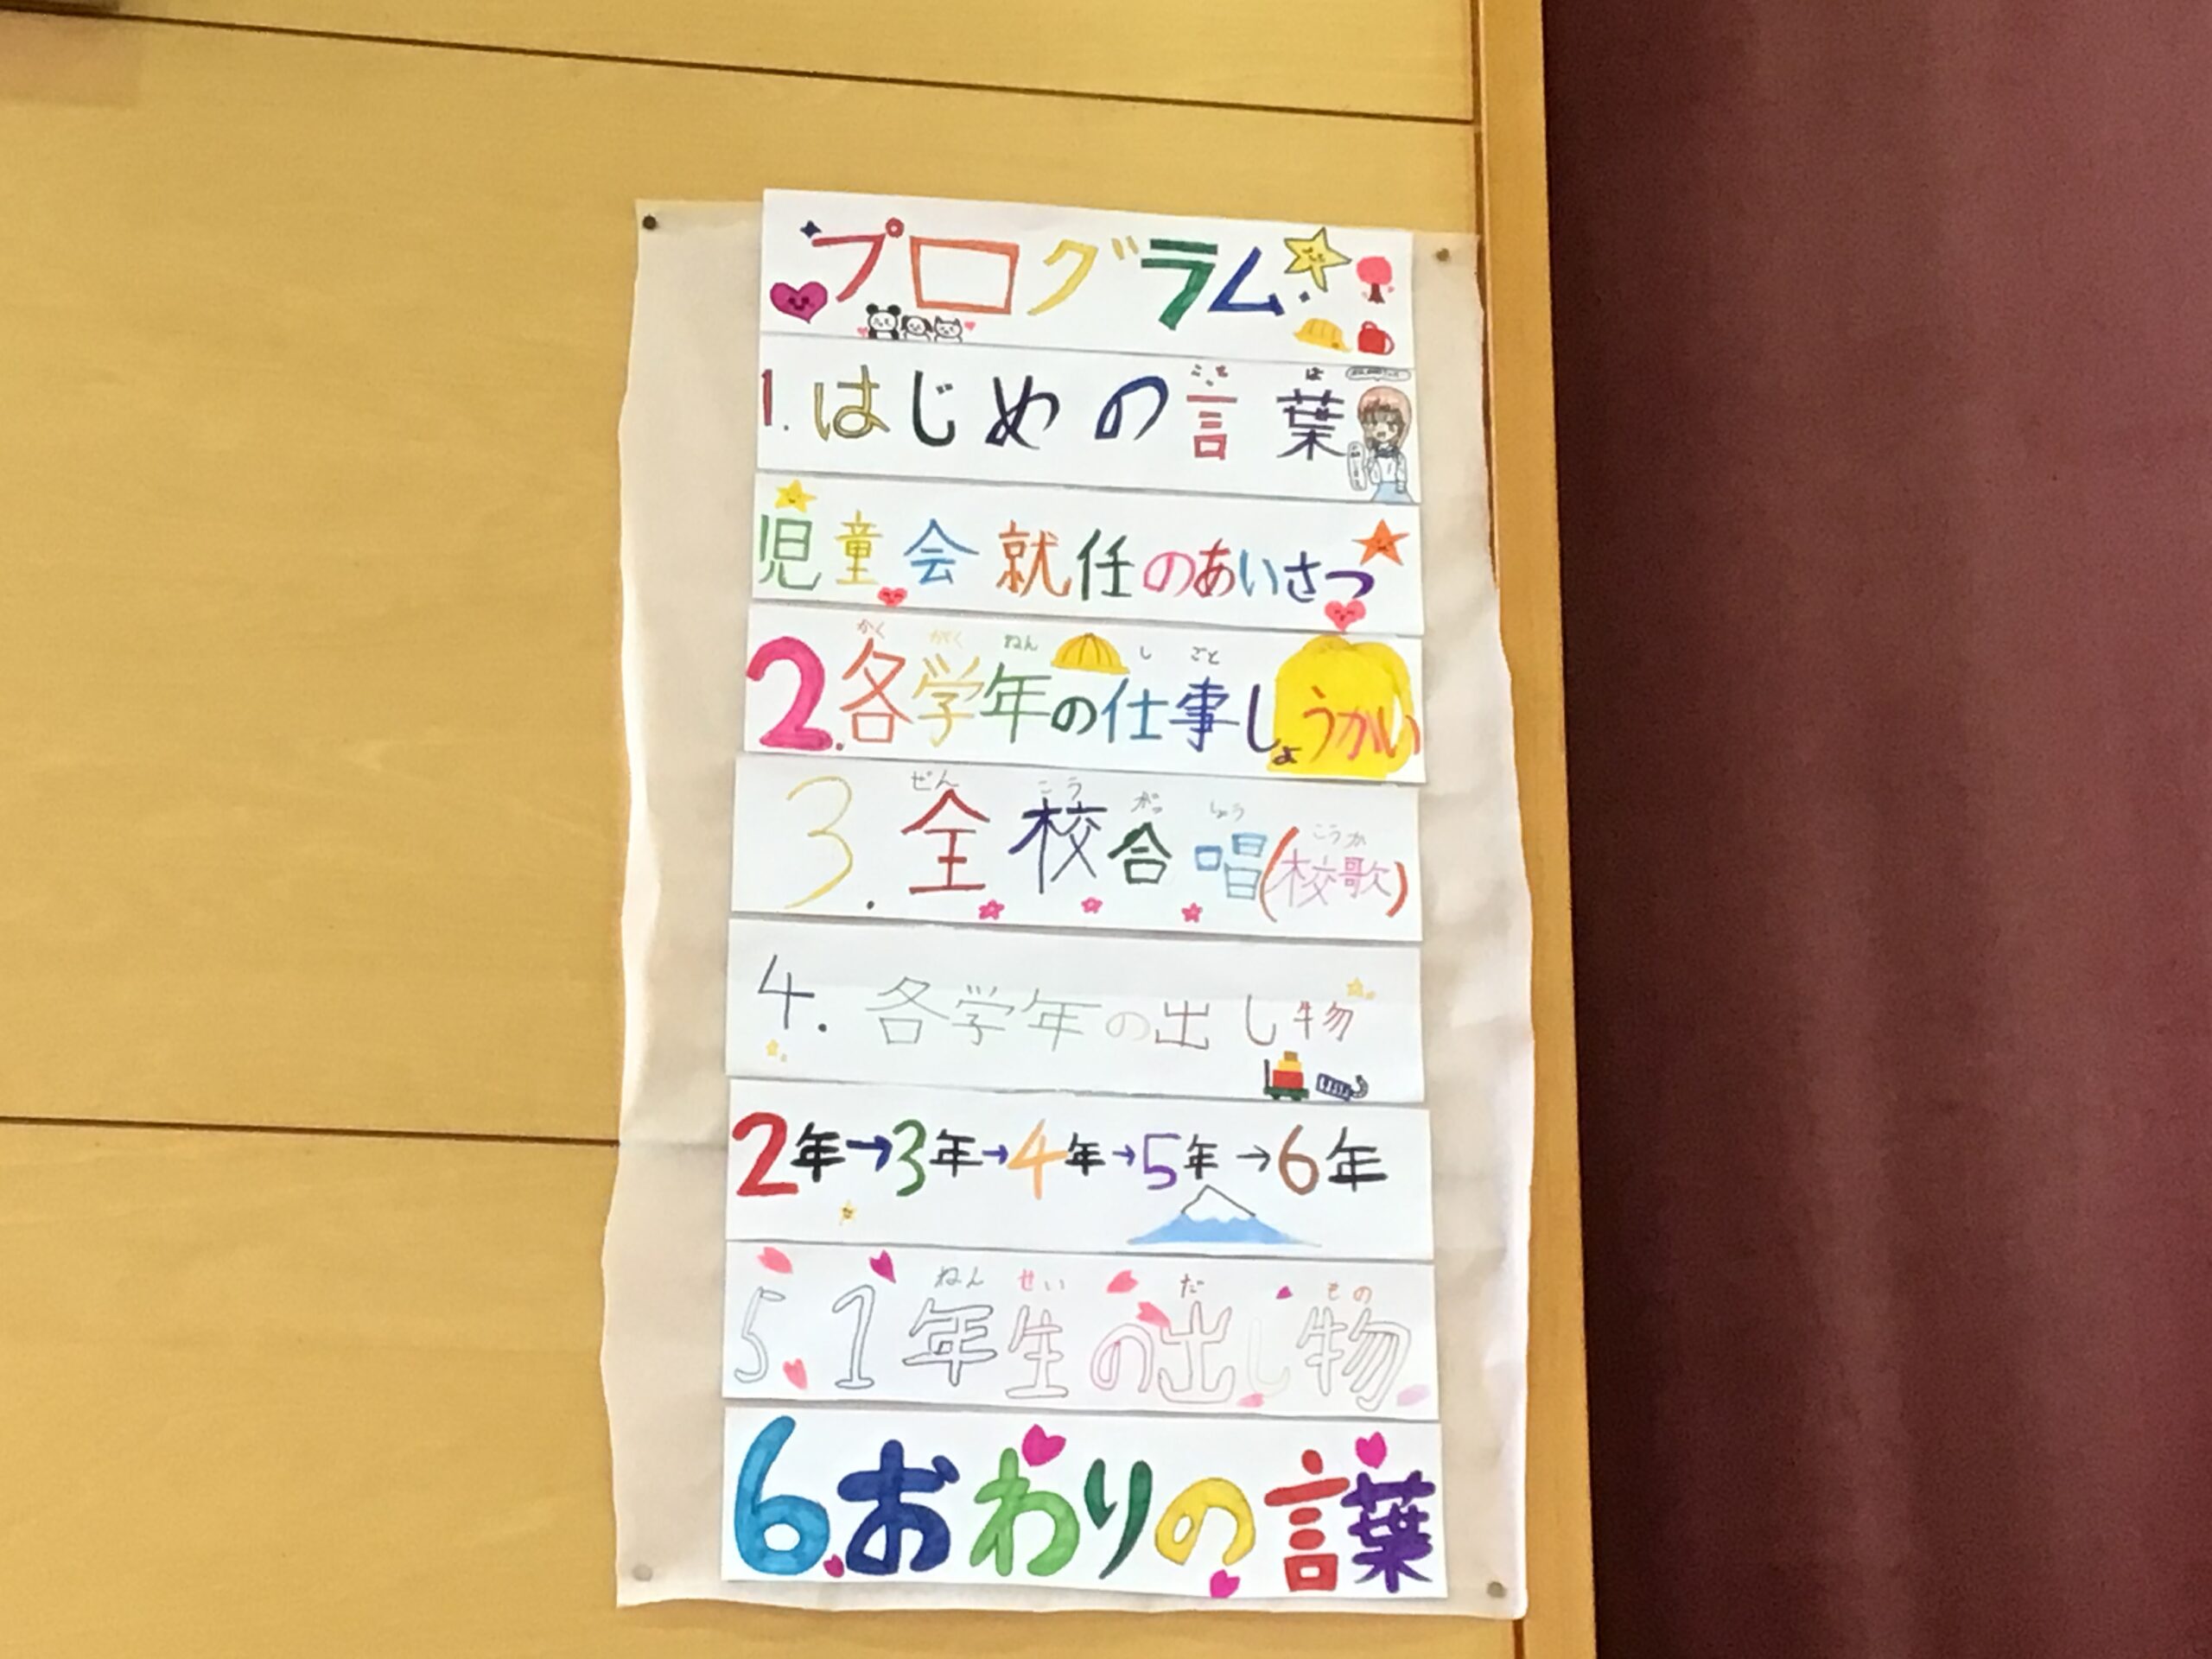 プログラム
1. はじめの言葉
児童会就任のあいさつ
2. 各学年の仕事しょうかい
3. 全校合唱(校歌)
4. 各学年の出し物
2年→3年→4年→5年→6年
5. 1年生の出し物
6. おわりの言葉